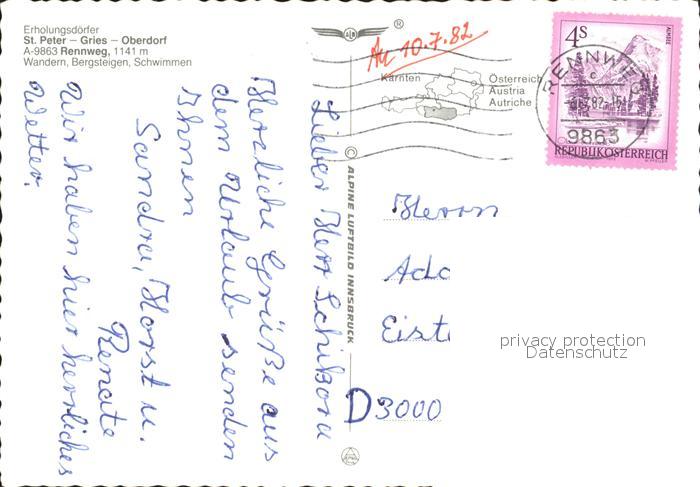 Erholungsdörfer
St. Peter – Gries – Oberdorf
A-9863 Rennweg, 1141 m
Wandern, Bergsteigen, Schwimmen
®
An 10.7.82
Kärnten
Österreich
Austria
Autriche
4s
ALMSEE
RENNWEG
9863
REPUBLIK ÖSTERREICH
Lieber Herr
Herzliche Grüße aus
dem Urlaub senden
Ihnen
Sandra, Horst u.
Renate
Wir haben hier herrliches
Wetter.
© ALPINE LUFTBILD INNSBRUCK
Herrn
D3000
privacy protection
Datenschutz